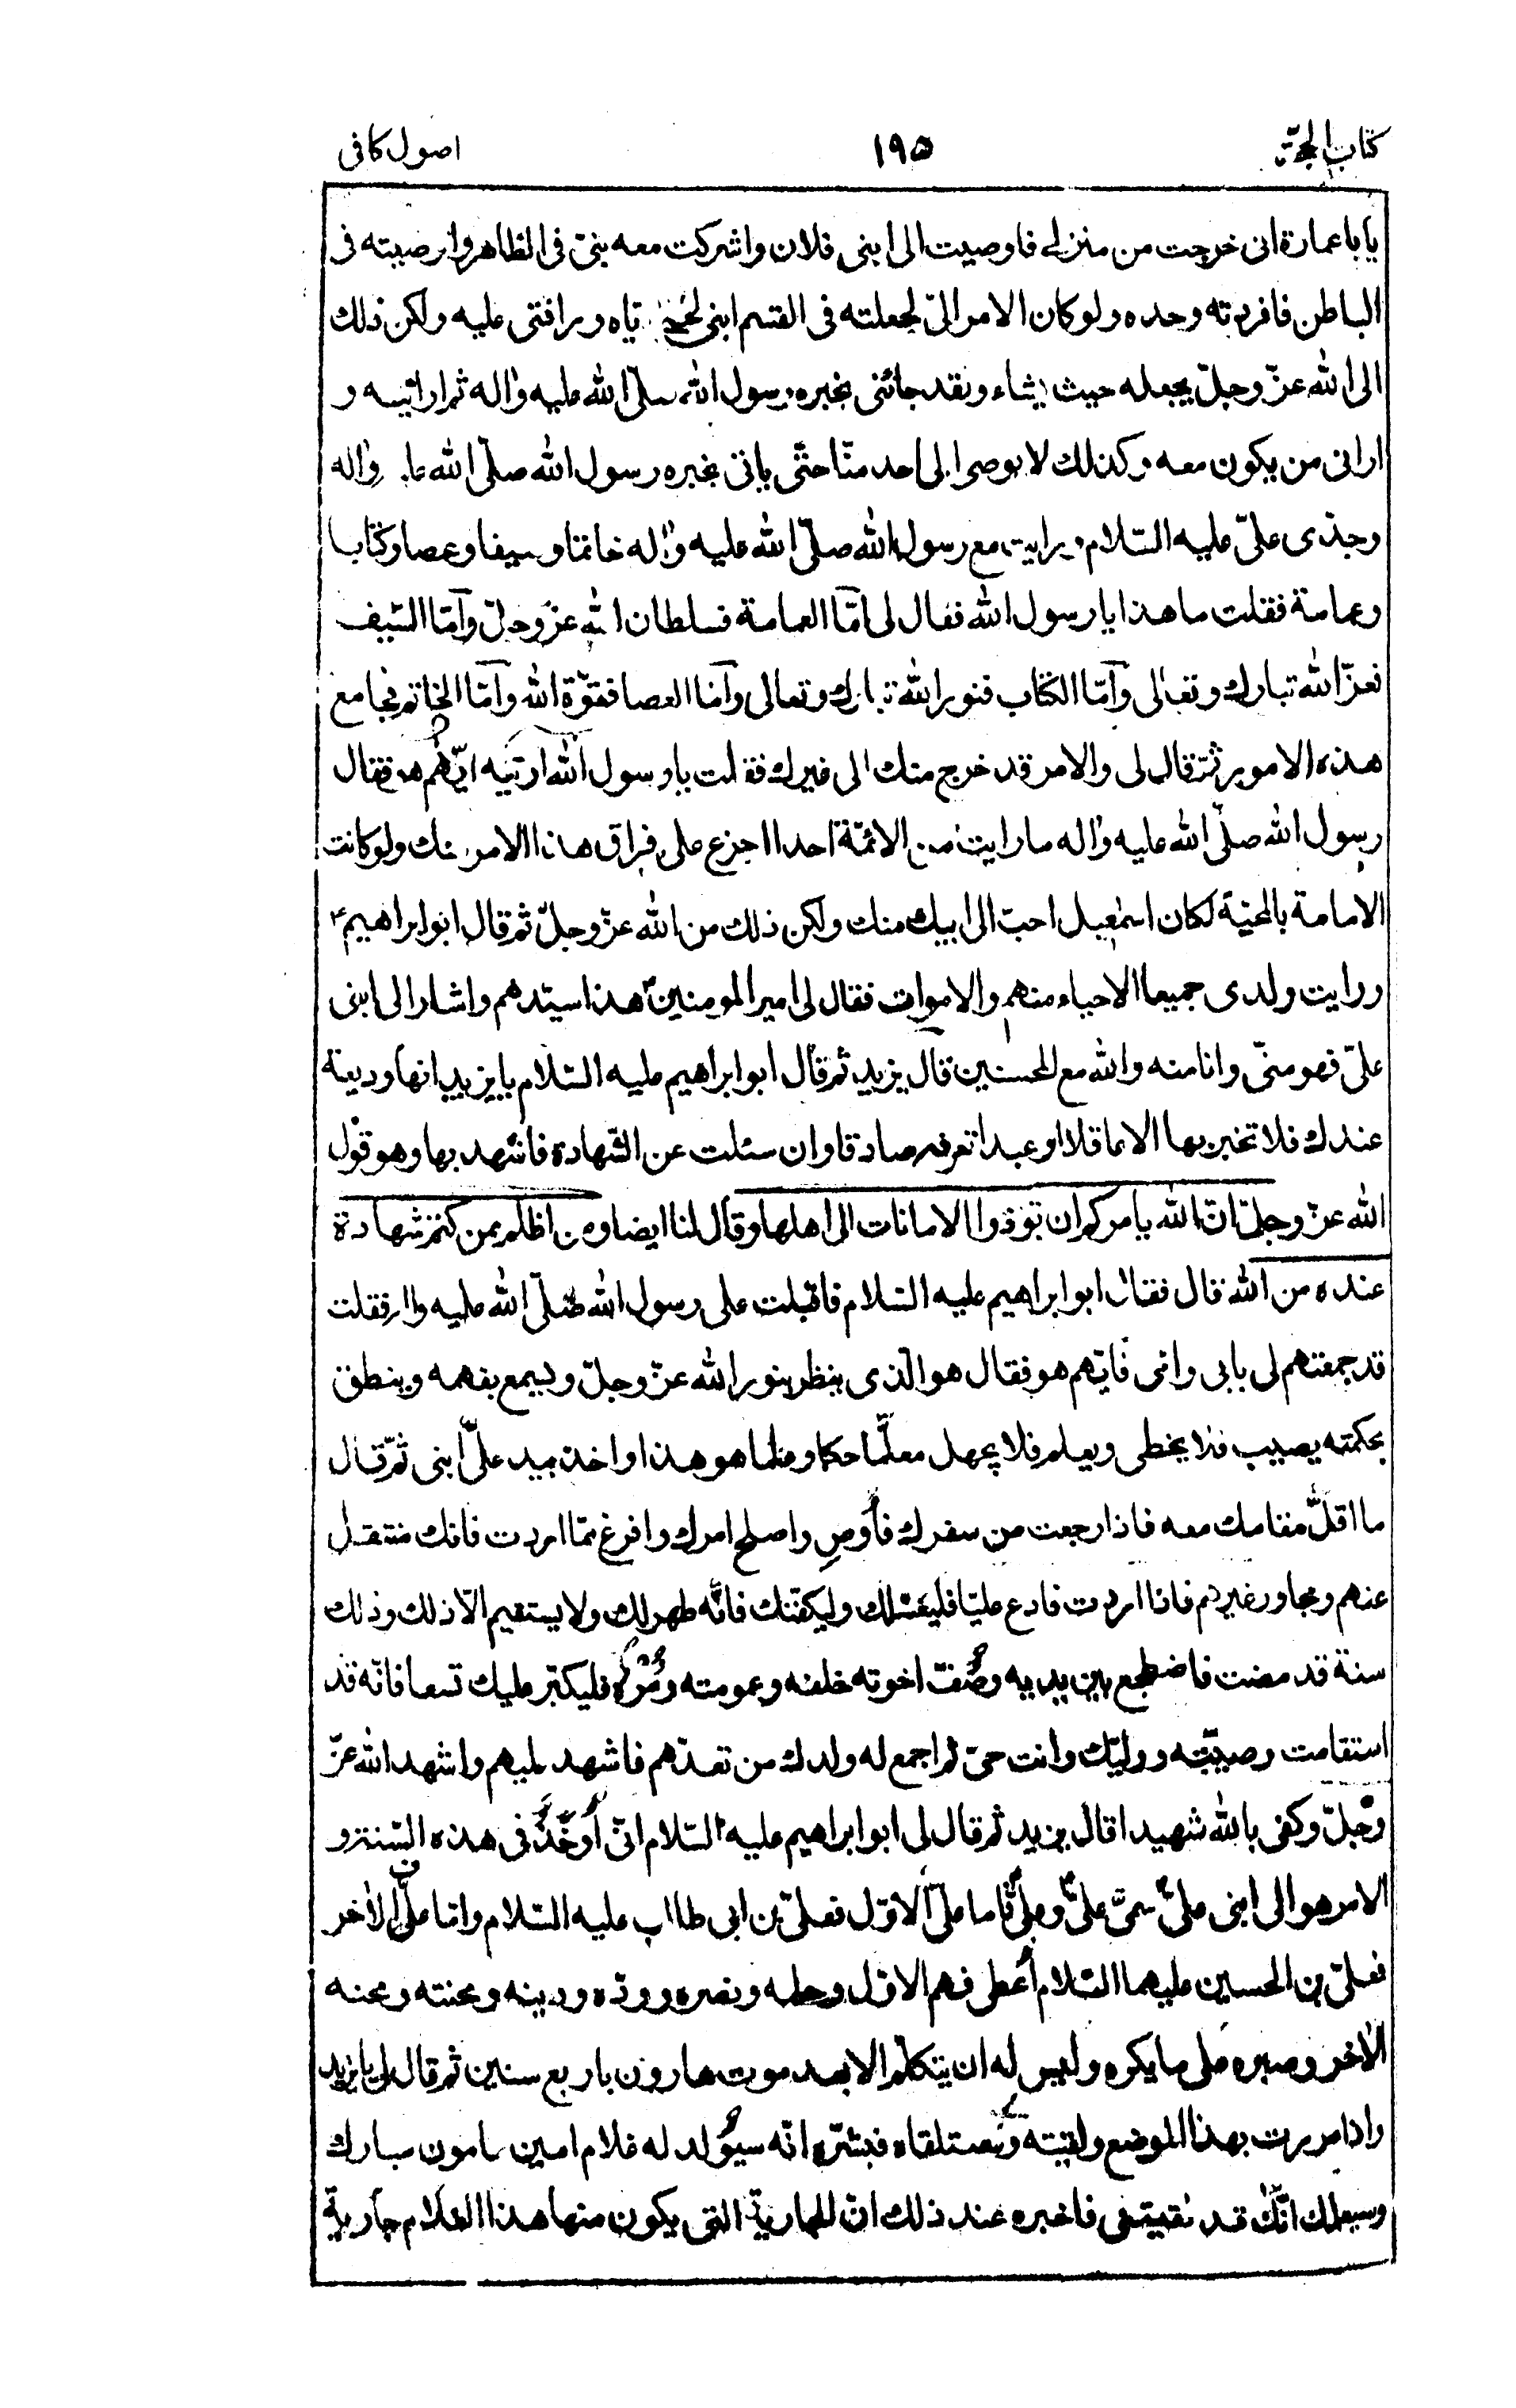 كتاب الحجة ١٩٥ اصول كافى
يا باعمارة انى خرجت من منزلى فاوصيت الى ابنى فلان واشركت معه بنىّ فى الظاهر واوصيته فى
الباطن فافردته وحده ولوكان الامر الىّ لجعلته فى القسم ابنى لحبى اياه ورافتى عليه ولكن ذلك
الى الله عزّ وجلّ يجعله حيث يشاء ولقد جائنى بخبره رسول الله صلّى الله عليه واٰله ثم ارانيه و
ارانى من يكون معه وكذلك لا يوصى الى احد منّا حتّى ياتى بخبره رسول الله صلّى الله عليه واٰله
وجدّى علىّ عليه السّلام ورايت مع رسول الله صلّى الله عليه واٰله خاتما وسيفا وعصا وكتابا
وعمامة فقلت ما هذا يا رسول الله فقال لى امّا العمامة فسلطان الله عزّ وجلّ وامّا السّيف
فعزّ الله تبارك وتعالى وامّا الكتاب فنور الله تبارك وتعالى وامّا العصا فقوّة الله وامّا الخاتم فجامع
هذه الامور ثمّ قال لى والامر قد خرج منك الى غيرك فقلت يا رسول الله ارنيه ايّهم هو فقال
رسول الله صلّى الله عليه واٰله ما رايت من الائمّة احدا اجزع على فراق هذا الامر منك ولوكانت
الامامة بالمحبّة لكان اسمٰعيل احبّ الى ابيك منك ولكن ذلك من الله عزّ وجلّ ثم قال ابوابراهيم ع
ورايت ولدى جميعا الاحياء منهم والاموات فقال لى امير المومنين ع هذا سيّدهم واشار الى ابنى
علىّ فهو منّى وانا منه والله مع المحسنين قال يزيد ثم قال ابوابراهيم عليه السّلام يا يزيد انها وديعة
عندك فلا تخبر بها الا عاقلا او عبدا تعرفه صادقا وان سئلت عن الشّهادة فاشهد بها وهو قول
الله عزّ وجلّ انّ الله يامركم ان تؤدوا الامانات الى اهلها وقال لنا ايضا ومن اظلم ممن كتم شهادة
عنده من الله قال فقال ابوابراهيم عليه السّلام فاقبلت على رسول الله صلّى الله عليه واٰله فقلت
قد جمعتهم لى بابى وامّى فايّهم هو فقال هو الّذى ينظر بنور الله عزّ وجلّ ويسمع بفهمه وينطق
بحكمته يصيب فلا يخطى ويعلم فلا يجهل معلّما حكما وعلما هو هذا واخذ بيد علىّ ابنى ثمّ قال
ما اقلّ مقامك معه فاذا رجعت من سفرك فأوصِ واصلح امرك وافرغ ممّا اردت فانك منتقل
عنهم ومجاور غيرهم فاذا اردت فادع عليّا فليغسّلك وليكفّنك فانّه طهر لك ولا يستقيم الّا ذلك وذلك
سنة قد مضت فاضطجع بين يديه وصُفّ اخوته خلفه وعمومته ومُرْه فليكبّر عليك تسعا فانّه قد
استقامت وصيّته ووليّك وانت حىّ ثم اجمع له ولدك من تعدّهم فاشهد عليهم واشهد الله عزّ
وجلّ وكفى بالله شهيدا قال يزيد ثم قال لى ابوابراهيم عليه السّلام انّى أوخَذُ فى هذه السّنة و
الامر هو الى ابنى علىّ سمىّ علىّ وعلىّ فاما علىّ الاوّل فعلىّ بن ابى طالب عليه السّلام وامّا علىّ الاٰخر
فعلىّ بن الحسين عليهما السّلام أعطى فهم الاوّل وحلمه ونصره وودّه ودينه ومحنته ومحنه
الاٰخر وصبره على ما يكره وليس له ان يتكلّم الا بعد موت هارون باربع سنين ثم قال لى يا يزيد
واذا مررت بهذا الموضع ولقيته وستلقاه فبشّره انّه سيولد له غلام امين مامون مبارك
وسيعلمك انّك قد لقيتنى فاخبره عند ذلك انّ الجارية التى يكون منها هذا الغلام جارية